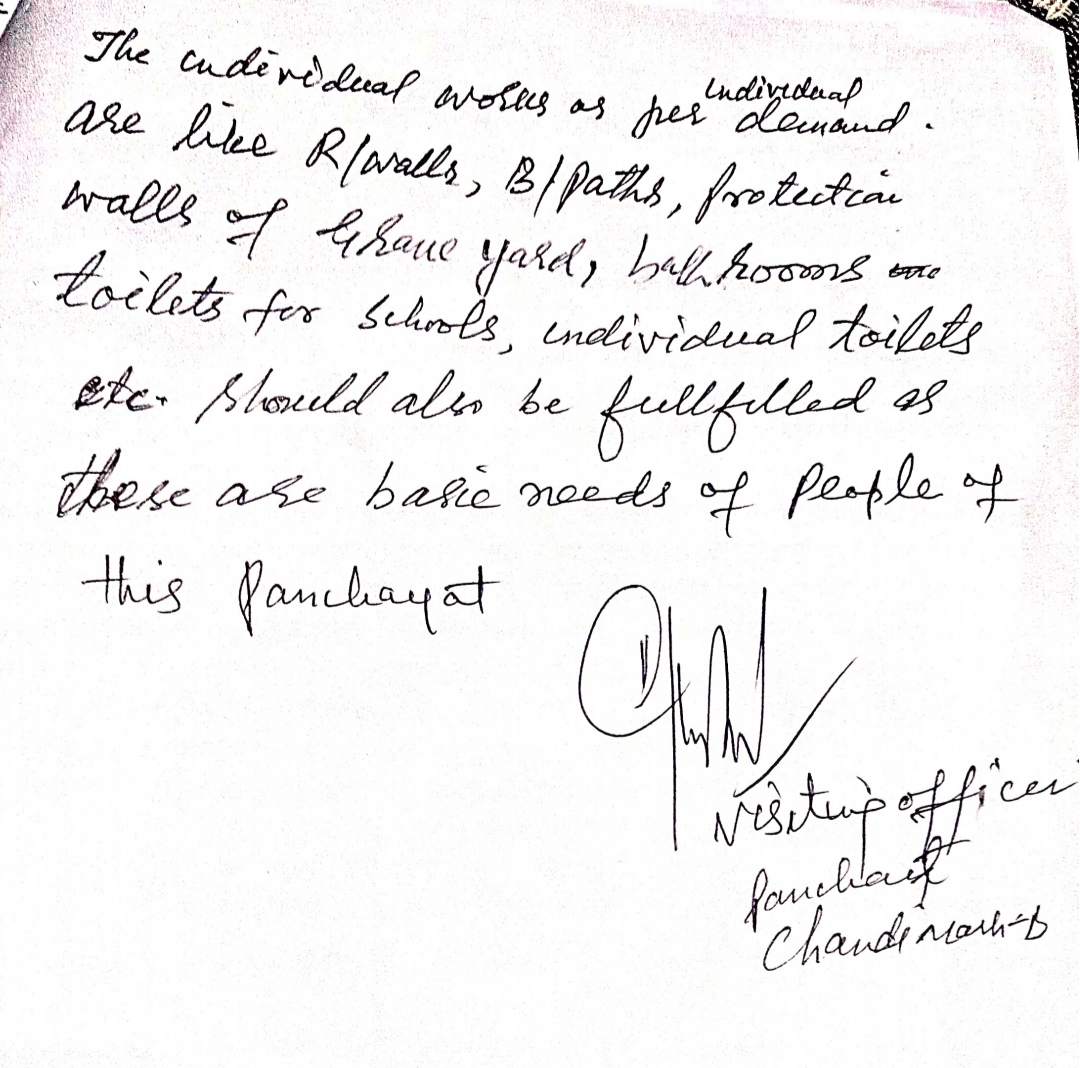 The individual works as per individual demand.
are like R/walls, B/Paths, protection
walls of Grave yard, bathrooms
toilets for schools, individual toilets
etc. should also be fullfilled as
these are basic needs of people of
this Panchayat
Visiting officer
Panchait
Chandimarh-B